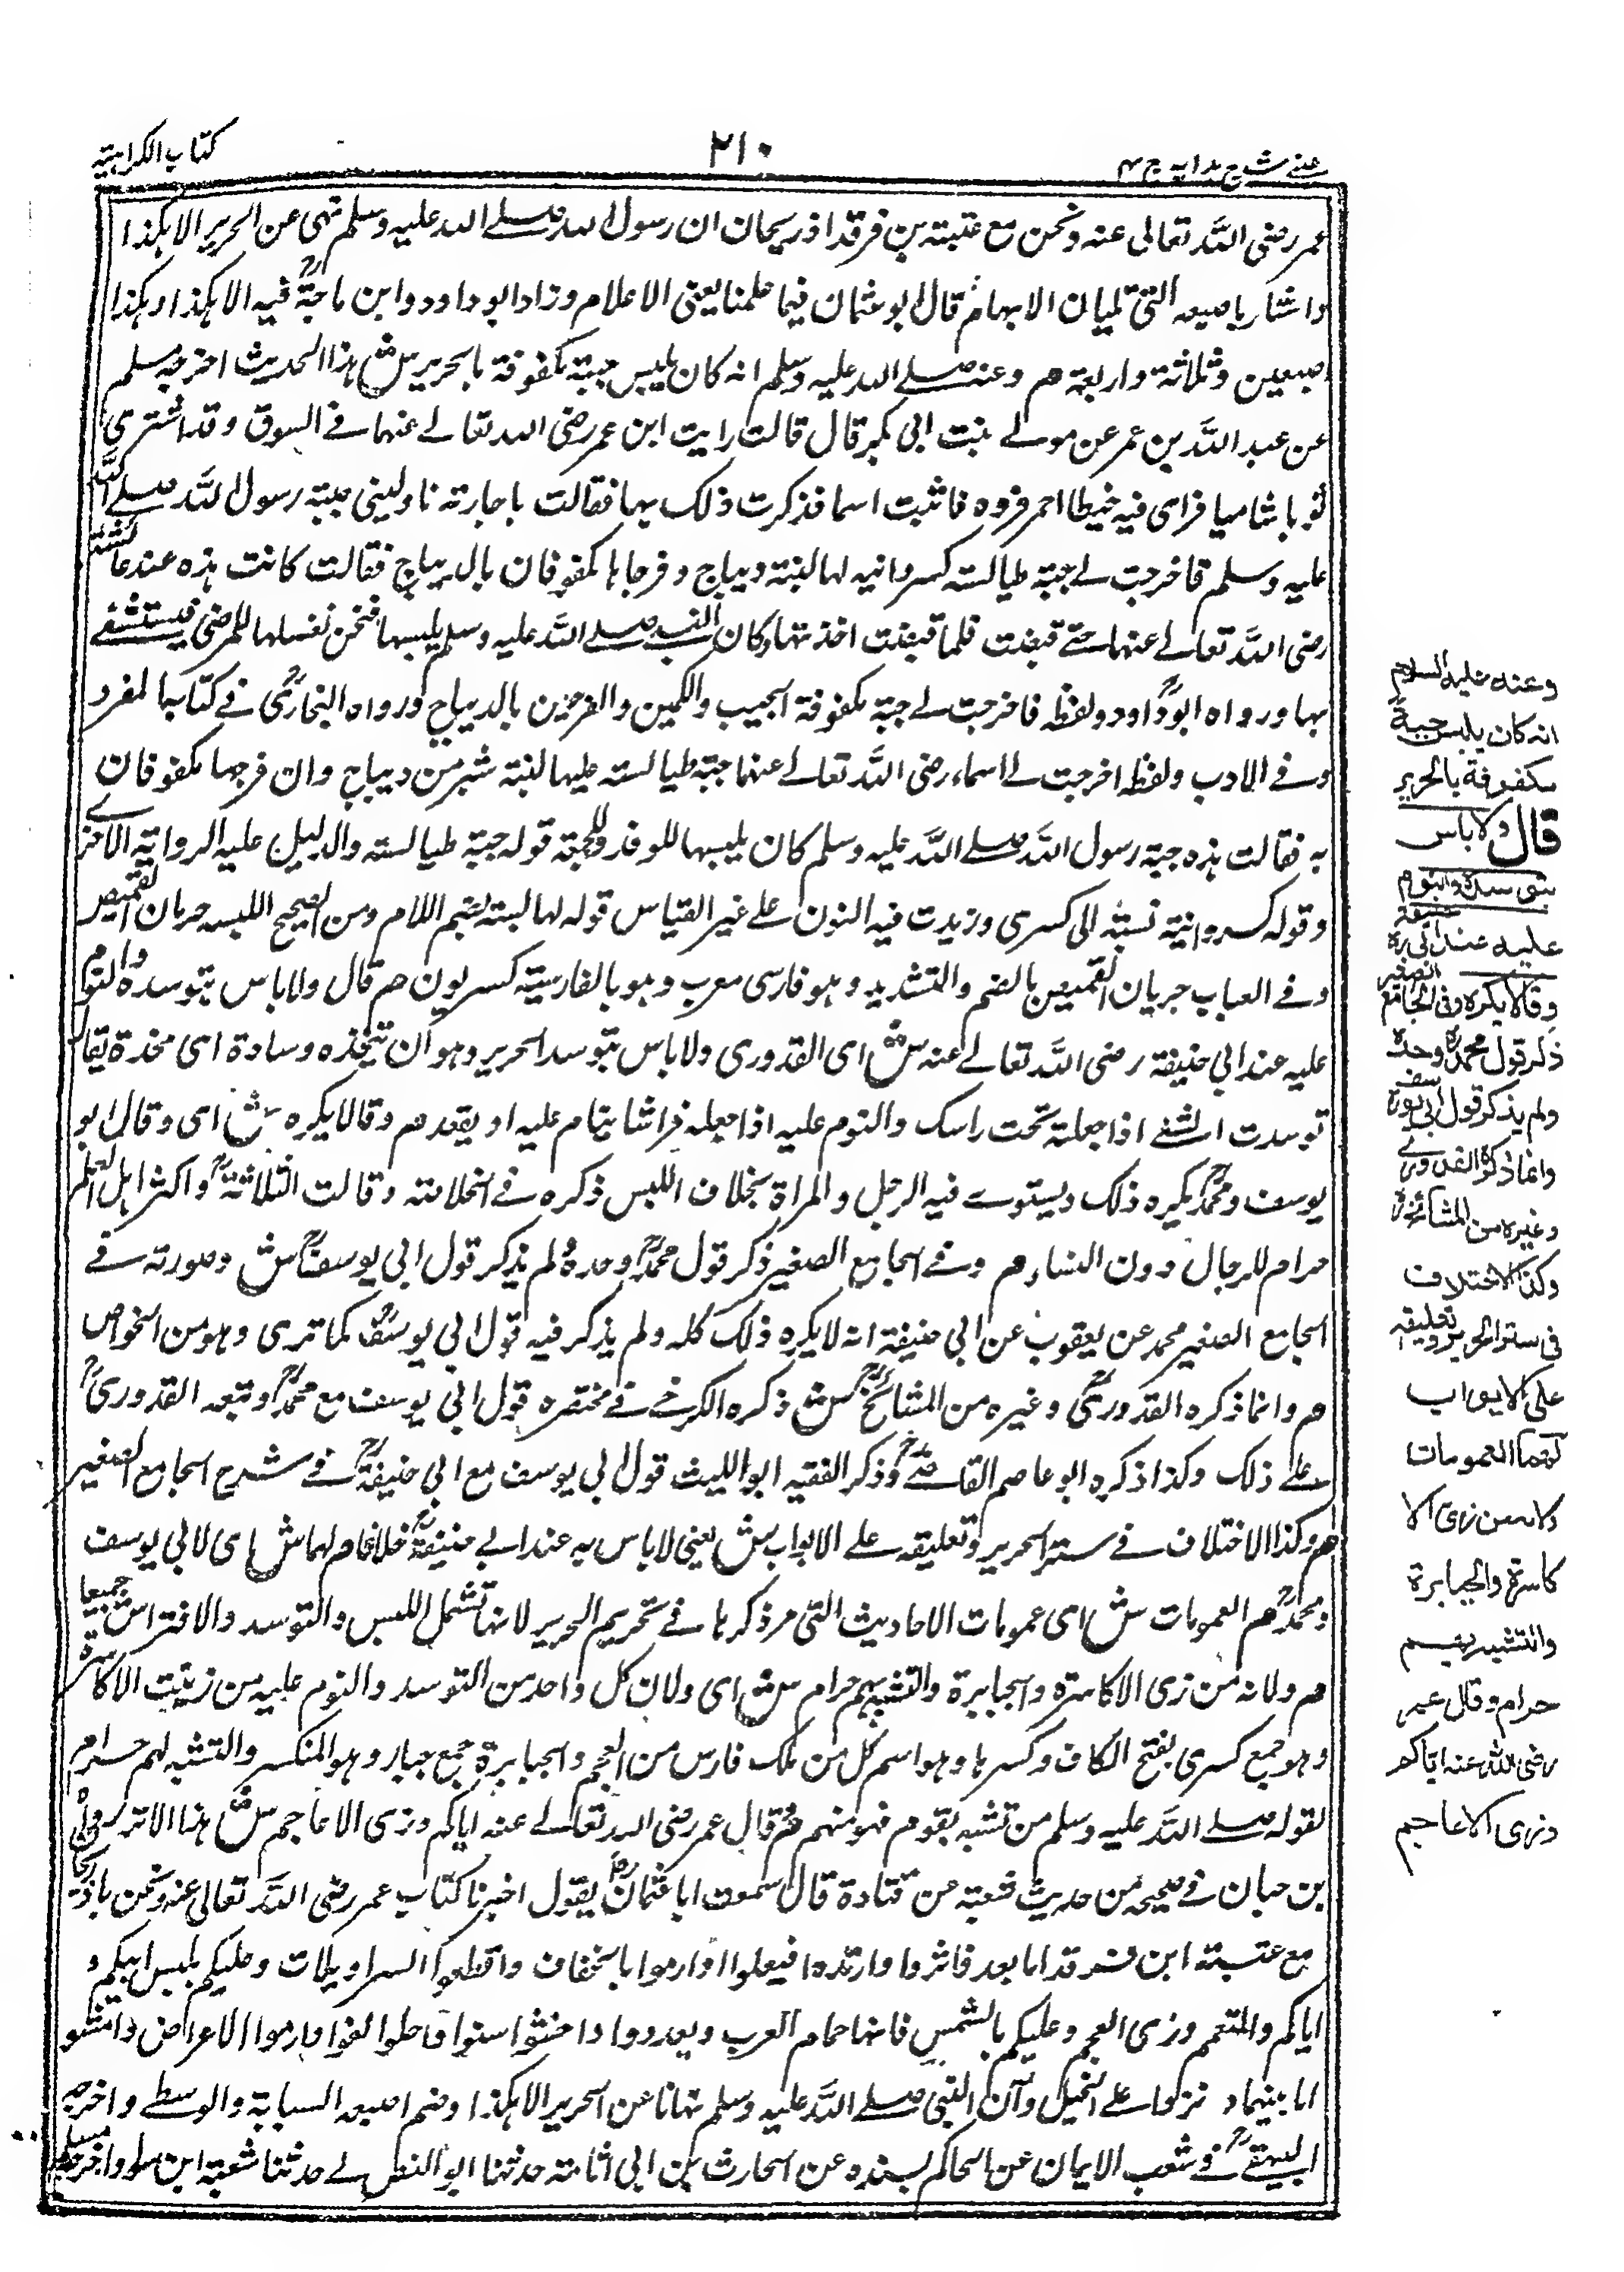 عینے شرح ہدایہ ج ۴
۲۱۰
کتاب الکراہیتہ
عمر رضی اللہ تعالی عنہ ونحن مع عتبتہ بن فرقد اذریجان ان رسول اللہ صلے اللہ علیہ وسلم نہی عن الحریر الا ہکذا
واشار باصبعہ التی تلیان الابہام قال ابو عثمان فیما علمنا یعنی الاعلام وزاد ابو داود وابن ماجۃ فیہ الا ہکذا وہکذا
اصبعین وثلاثۃ واربعۃ ھم وعنہ صلے اللہ علیہ وسلم انہ کان یلبس جبۃ مکفوفۃ بالحریر ش ہذا الحدیث اخرجہ مسلم
عن عبد اللہ بن عمر عن مولے بنت ابی بکر قال قالت رایت ابن عمر رضی اللہ تعالے عنہما فے السوق وقد اشتری
ثوبا شامیا فرای فیہ خیطا احمر فردہ فاتیت اسما فذکرت ذلک بہا فقالت یا جاریۃ ناولینی جبۃ رسول اللہ صلے اللہ
علیہ وسلم فاخرجت لے جبۃ طیالستہ کسروانیہ لہا لبنۃ دیباج وفرجاہا مکفوفان بالدیباج فقالت کانت ہذہ عند عائشۃ
رضی اللہ تعالے عنہا حتے قبضت فلما قبضت اخذتہا وکان النبی صلے اللہ علیہ وسلم یلبسہا فنحن نغسلہا للمرضی نستشفے
بہا ورواہ ابو داود ولفظہ فاخرجت لے جبۃ مکفوفۃ الجیب والکمین والفرجین بالدیباج ورواہ البخاری فے کتابہ المفرد
وفے الادب ولفظہ اخرجت لے اسماء رضی اللہ تعالے عنہا جبۃ طیالستہ علیہا لبنۃ شبر من دیباج وان فرجہا مکفوفان
بہ فقالت ہذہ جبۃ رسول اللہ صلے اللہ علیہ وسلم کان یلبسہا للوفد وللجمعۃ قولہ جبۃ طیالستہ والدلیل علیہ الروایۃ الاخرے
وقولہ کسروانیۃ نسبۃ الی کسری وزیدت فیہ النون علے غیر القیاس قولہ لہا لبنۃ بضم اللام ومن الصحیح اللبسہ جربان القمیص
وفے العباب جربان القمیص بالضم والتشدید وہو فارسی معرب وہو بالفارسیۃ کسریون ھم قال ولا باس بتوسدہ والنوم
علیہ عند ابی حنیفۃ رضی اللہ تعالے عنہ ش ای القدوری ولا باس بتوسد الحریر وہو ان تتخذہ وسادۃ ای مخدۃ یقال
توسدت الشے اذا جعلتہ تحت راسک والنوم علیہ اذا جعلہ فراشا ینام علیہ او یقعد ھم وقالا یکرہ ش ای وقال ابو
یوسف ومحمد یکرہ ذلک ویستوے فیہ الرجل والمراۃ بخلاف اللبس ذکرہ فے الخلاصۃ وقالت الثلاثۃ واکثر اہل العلم
حرام للرجال دون النساء ھم وفے الجامع الصغیر ذکر قول محمد وحدہ ولم یذکر قول ابی یوسف ش وصورتہ فے
الجامع الصغیر محمد عن یعقوب عن ابی حنیفۃ انہ لا یکرہ ذلک کلہ ولم یذکر فیہ قول ابی یوسف کما تری وہو من الخواص
ھم وانما ذکرہ القدوری وغیرہ من المشائخ ش ذکرہ الکرخے فے مختصرہ قول ابی یوسف مع محمد وتبعہ القدوری
علے ذلک وکذا ذکرہ ابو عاصم القاضے وذکر الفقیہ ابو اللیث قول ابی یوسف مع ابی حنیفۃ فے شرح الجامع الصغیر
ھم وکذا الاختلاف فے ستر الحریر وتعلیقہ علے الابواب ش یعنی لا باس بہ عند ابے حنیفۃ خلافا ھم لہما ش ای لابی یوسف
ومحمد ھم العمومات ش ای عمومات الاحادیث التی مر ذکرہا فے تحریم الحریر لانہا تشمل اللبس والتوسد والافتراش جمیعا
ھم ولانہ من زی الاکاسرۃ والجبابرۃ والتشبہ بہم حرام ش ای ولان کل واحد من التوسد والنوم علیہ من زینت الاکاسرۃ
وہو جمع کسری بفتح الکاف وکسرہا وہو اسم کل من ملک فارس من العجم والجبابرۃ جمع جبار وہو المتکبر والتشبہ لہم حرام
لقولہ صلے اللہ علیہ وسلم من تشبہ بقوم فہو منہم ھم وقال عمر رضی اللہ تعالے عنہ ایاکم وزی الاعاجم ش ہذا الاثر رواہ
بن حبان فے صحیحہ من حدیث شعبۃ عن قتادۃ قال سمعت ابا عثمان یقول اخبرنا کتاب عمر رضی اللہ تعالی عنہ ونحن باذربیجان
مع عتبۃ ابن فرقد اما بعد فاتزروا وارتدوا فیعلوا وارموا بالخفاف واقطعوا السراویلات وعلیکم بلبس ابیکم و
ایاکم والتنعم وزی العجم وعلیکم بالشمس فانہا حمام العرب واخشوشنوا واخلولقوا وارموا الاعراض وامشو
اما بینہما و نزکوا علے الخیل وآن النبی صلے اللہ علیہ وسلم نہانا عن الحریر الا ہکذا وضم اصبعہ السبابۃ والوسطے واخرجہ
البیہقے فے شعب الایمان عن الحاکم بسندہ عن الحارث بن ابی اثامۃ حدثنا ابو النصر لے حدثنا شعبۃ ابن سلو واخرجہ مسلم
وعنہ علیہ السلام
انہ کان یلبس جبۃ
مکفوفۃ بالحریر
قال ولا باس
بتوسدہ والنوم
علیہ عند ابی حنیفۃ رہ
وقالا یکرہ وفی الجامع الصغیر
ذکر قول محمد رہ وحدہ
ولم یذکر قول ابی یوسف رہ
وانما ذکرہ القدورے
وغیرہ من المشائخ رہ
وکذا الاختلاف
فی ستر الحریر وتعلیقہ
علی الابواب
لہما العمومات
ولانہ من زی الا
کاسرۃ والجبابرۃ
والتشبہ بہم
حرام وقال عمر
رضی اللہ عنہ ایاکم
وزی الاعاجم